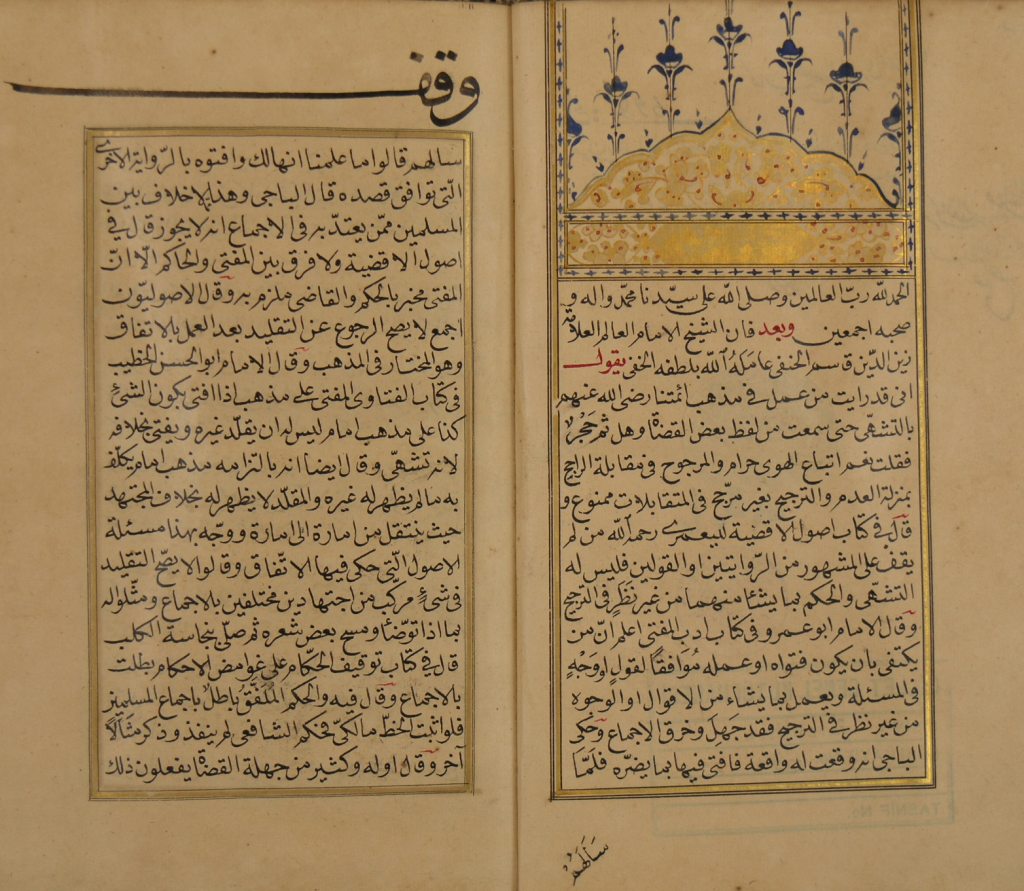 الحمد لله ربّ العالمين وصلى الله على سيّدنا محمّد واله و
صحبه اجمعين وبعد فان الشيخ الامام العالم العلامة
زين الدّين قاسم الحنفى عامله الله بلطفه الخفى يقول
انى قد رايت من عمل فى مذهب ائمتنا رضى الله عنهم
بالتشهّى حتى سمعت من لفظ بعض القضاة وهل ثم حَجْر
فقلت نعم اتباع الهوى حرام والمرجوح فى مقابلة الراجح
بمنزلة العدم والترجيح بغير مرجّح فى المتقابلات ممنوع و
قال فى كتاب اصول الاقضية لليعمرى رحمه الله من لم
يقف على المشهور من الرّوايتين او القولين فليس له
التشهّى والحكم بما يشئا منهما من غير نَظَرٍ فى الترجيح
وقال الامام ابو عمرو فى كتاب ادب المفتى اعلم انّ من
يكتفى بان يكون فتواه او عمله مُوَافقاً لقولٍ او وَجْهٍ
فى المسئلة ويعمل بما يشاء من الاقوال او الوجوه
من غير نظر فى الترجيح فقد جَهِلَ وخرق الاجماع وحكى
الباجى انه وقعت له واقعة فافتى فيها بما يضرّه فَلَمّا
سَاَلَهُمْ
وقف
سالهم قالوا ما علمنا انها لك وافتوه بالرّواية الاخرى
الّتى توافق قصده قال الباجى وهذا لا خلاف بين
المسلمين ممّن يعتدّ به فى الاجماع انه لا يجوز قال فى
اصول الاقضية ولا فرق بين المفتى والحاكم الّا انّ
المفتى مخبر بالحكم والقاضى ملزم به وقال الاصوليّون
اجمع لا يصح الرجوع عن التقليد بعد العمل بالاتفاق
وهو المختار فى المذهب وقال الامام ابو الحسن الخطيب
فى كتاب الفتاوى المفتى على مذهب اذا افتى بكون الشئ
كذا على مذهب امام ليس له ان يقلّد غيره ويفتى بخلافه
لانه تشهّى وقال ايضا انه بالتزامه مذهب امام يكلّف
به ما لم يظهر له غيره والمقلّد لا يظهر له بخلاف المجتهد
حيث ينتقل من امارة الى امارة ووجّه بهذا مسئلة
الاصول الّتى حكى فيها الاتّفاق وقالوا لا يصّح التقليد
فى شىءٍ مركّب من اجتهادين مختلفين بالاجماع ومثّلوا له
بما اذا توضّئا ومسح بعض شعره ثم صلّى بنجاسة الكلب
قال فى كتاب توقيف الحكّام على غوامض الاحكام بطلت
بالاجماع وقال فيه والحكم المُلَفَّقُ باطلٌ باجماع المسلمين
فلو اثبت الخطّ مالكىّ فحكم الشافعى لم ينفذ وذكر مثالاً
آخر وقال اوله وكثير من جهلة القضاة يفعلون ذلك